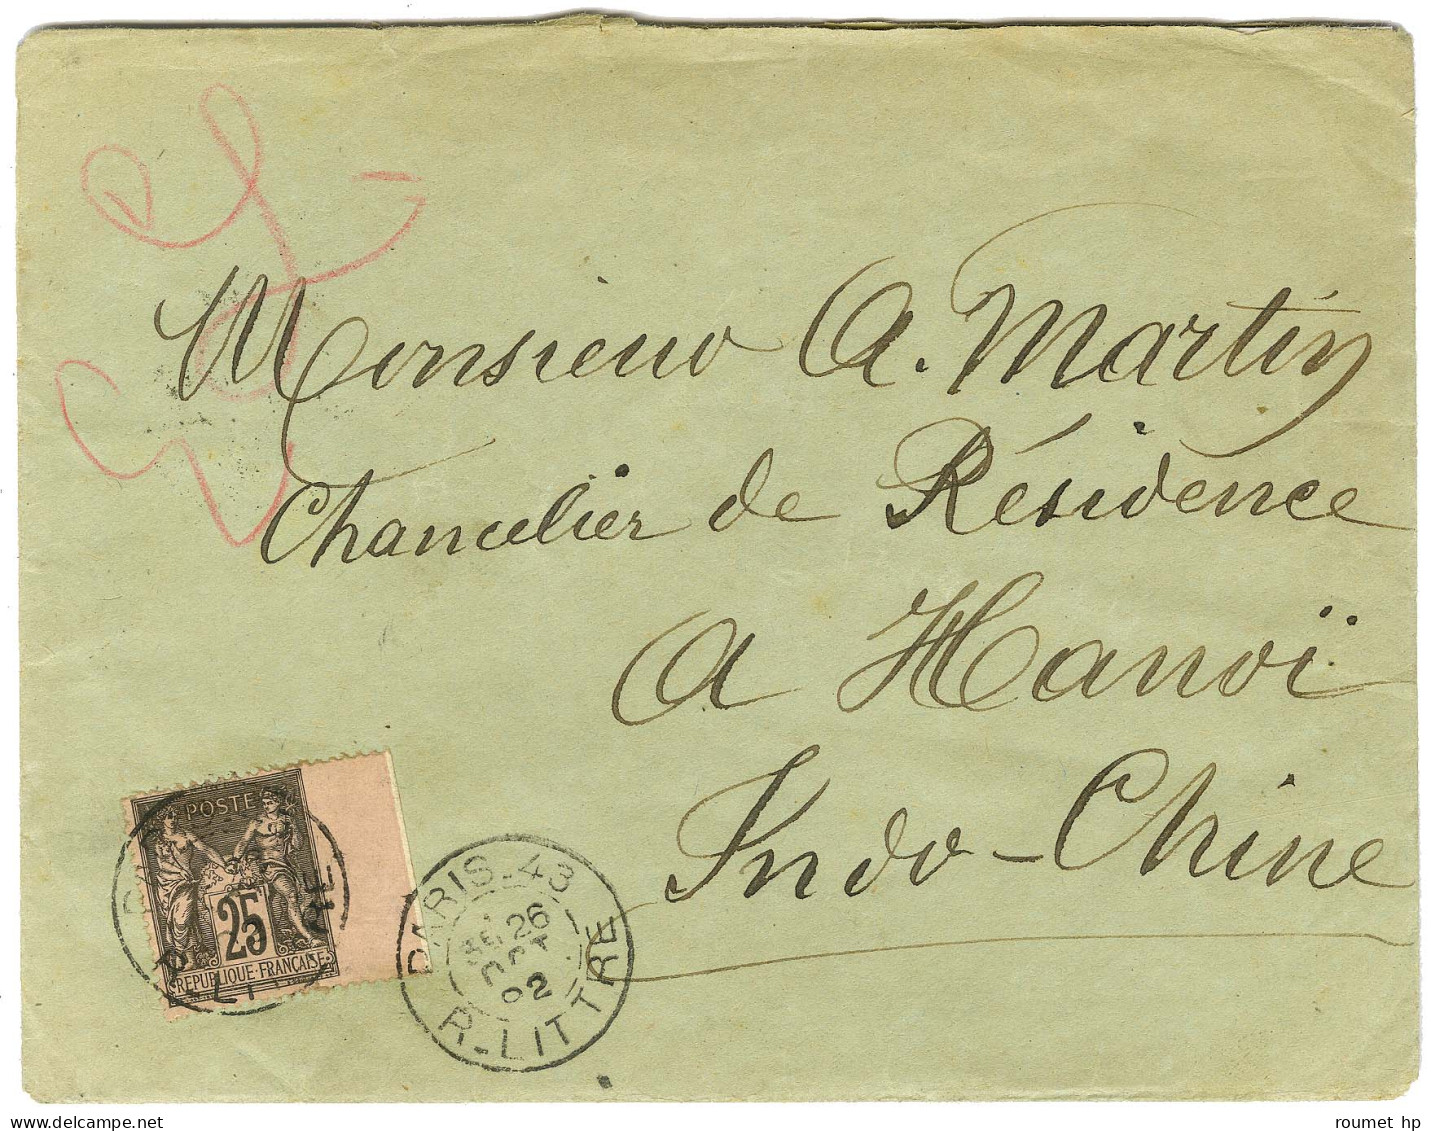 Monsieur A. Martin
Chancelier de Résidence
A Hanoï
Indo-Chine
POSTE
25
REPUBLIQUE FRANÇAISE
PARIS-43
26
OCT
02
R. LITTRE
roumet hp